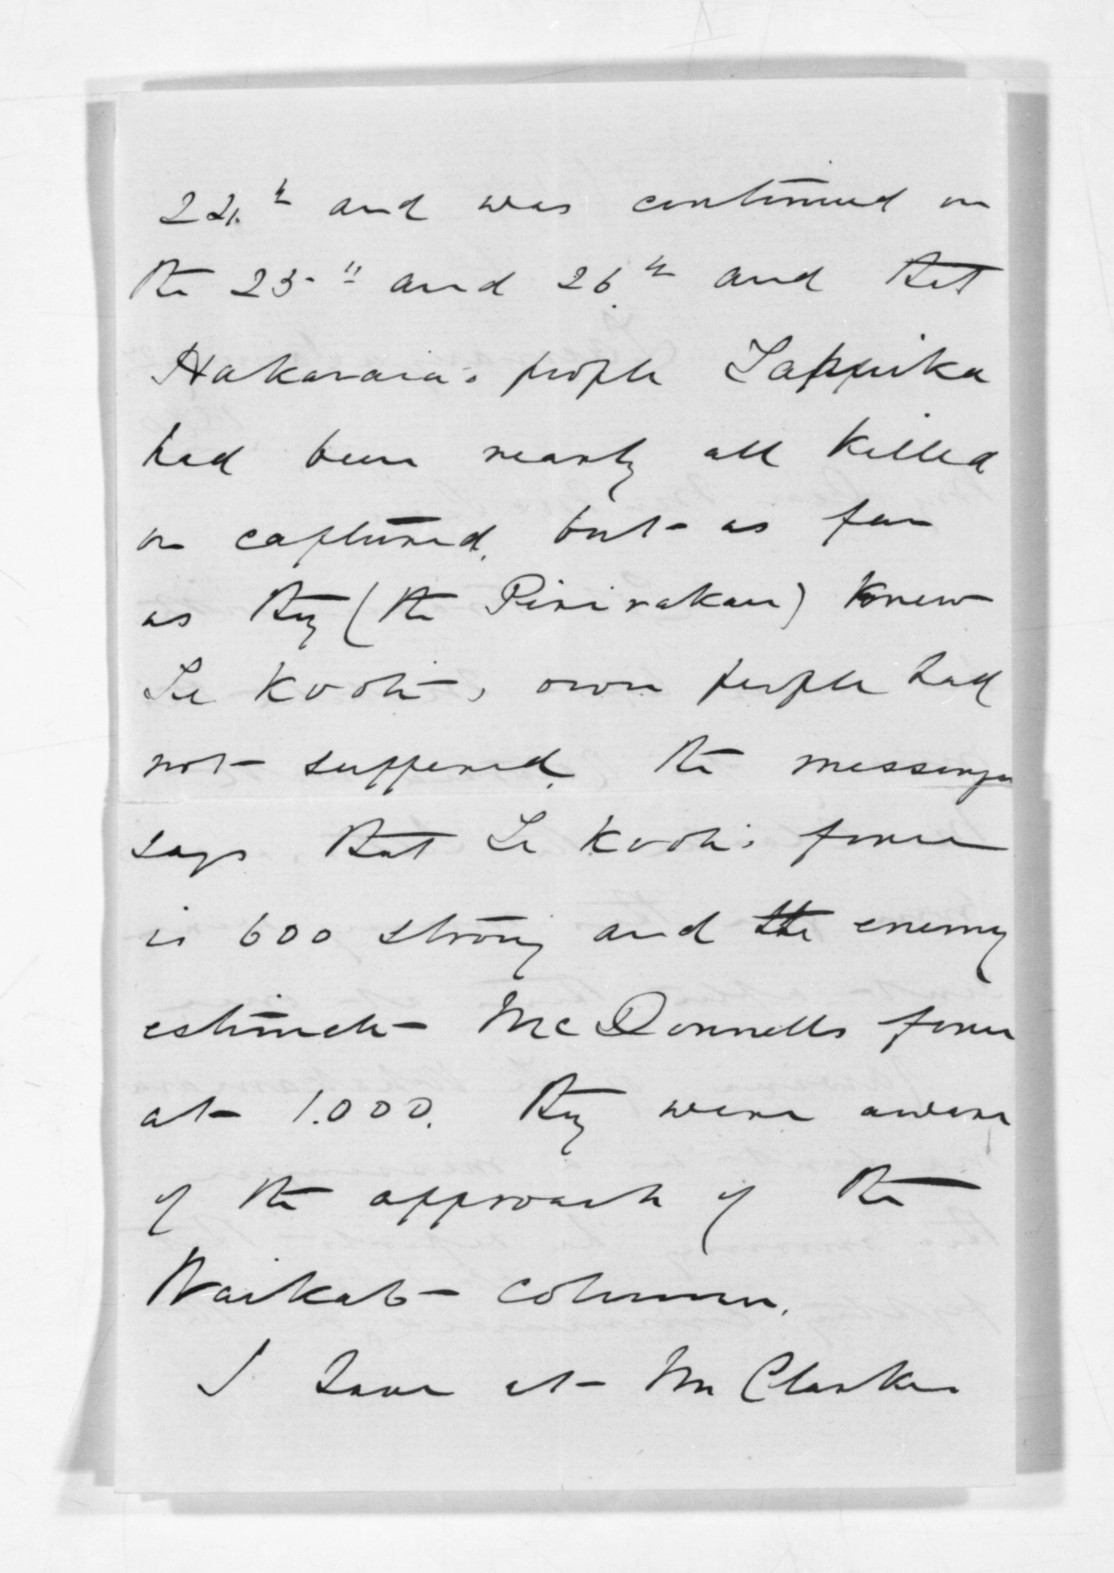 24th and was continued on
the 25th and 26th and that
Hakaraia's people Tappuika
had been nearly all killed
or captured, but as far
as they (the Pirirakau) knew
Te Kooti's own people had
not suffered. The messenger
says that Te Kooti's force
is 600 strong and the enemy
estimate McDonnells force
at 1.000. They were aware
of the approach of the
Waikato column.
I have at Mr Clarkes